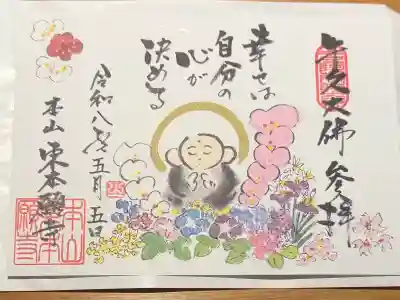 牛久大佛 参拝
幸せは
自分の
心が
決める
令和八年五月五日
本山東本願寺